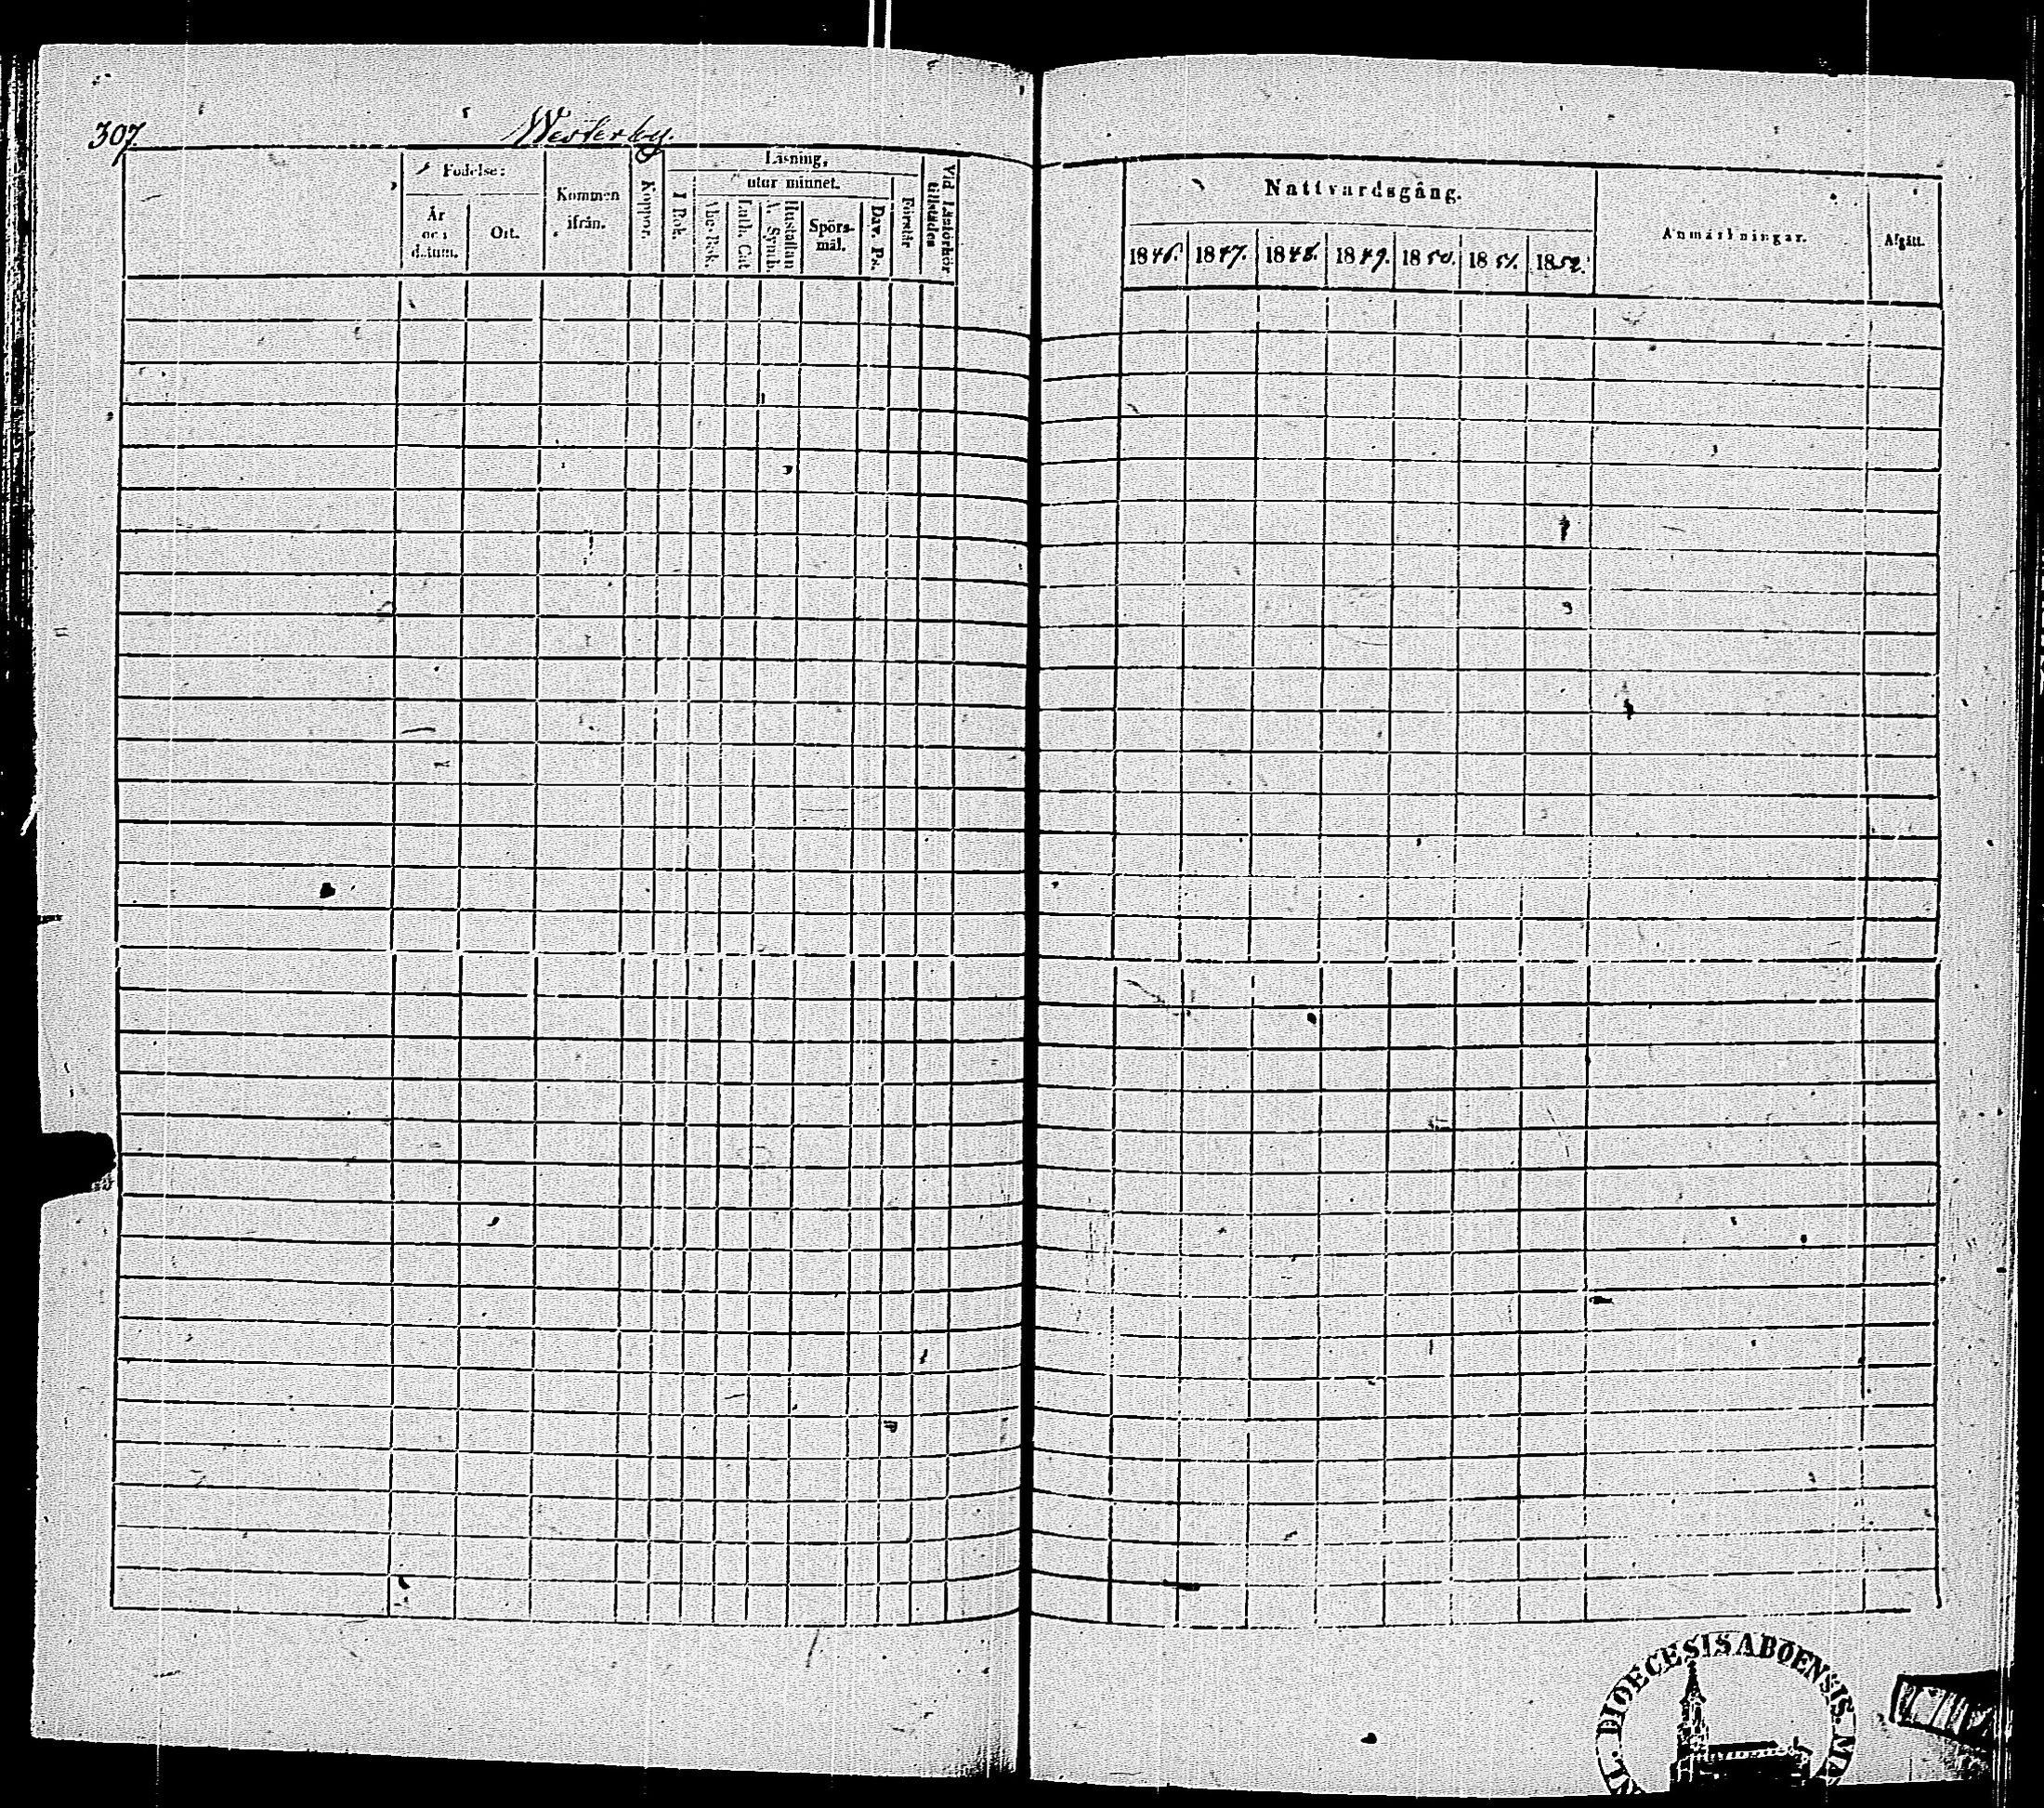 307.
Westerby.
Födelse:
År och datum.
Ort.
Kommen ifrån.
Koppor.
Läsning,
utur minnet.
I Bok.
Abc-Bok.
Luth. Cat
Hustaflan A. Symb.
Spörs-mål.
Dav. Ps.
Förstår
Vid Läsförhör tillstädes
Nattvardsgång.
1846. 1847. 1848. 1849. 1850. 1851. 1852.
Anmärkningar.
Afgått.
DIOECESIS ABOENSIS. MA